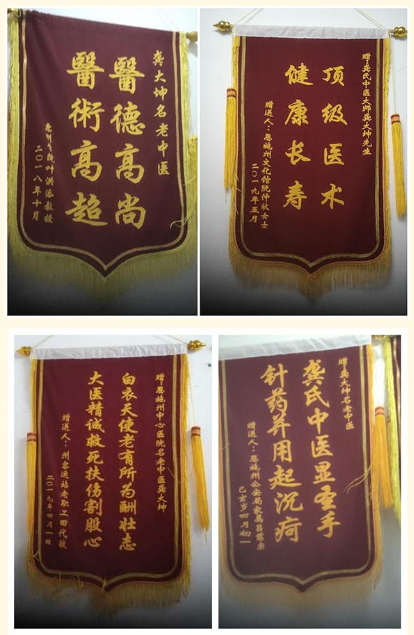 龚大坤名老中医
醫德高尚
醫術高超
二〇一八年十月
赠:龚氏中医大师龚大坤先生
顶级医术
健康长寿
赠送人:恩施州文化馆
二〇一九年五月
赠:恩施州中心医院名老中医龚大坤
白衣天使老有所为酬壮志
大医精诚救死扶伤割股心
赠送人:州客运站老职工田代
二〇一九年四月一日
赠:龚大坤名老中医
龚氏中医显圣手
针药并用起沉疴
赠送人:恩施州公安局家属
己亥岁四月初一